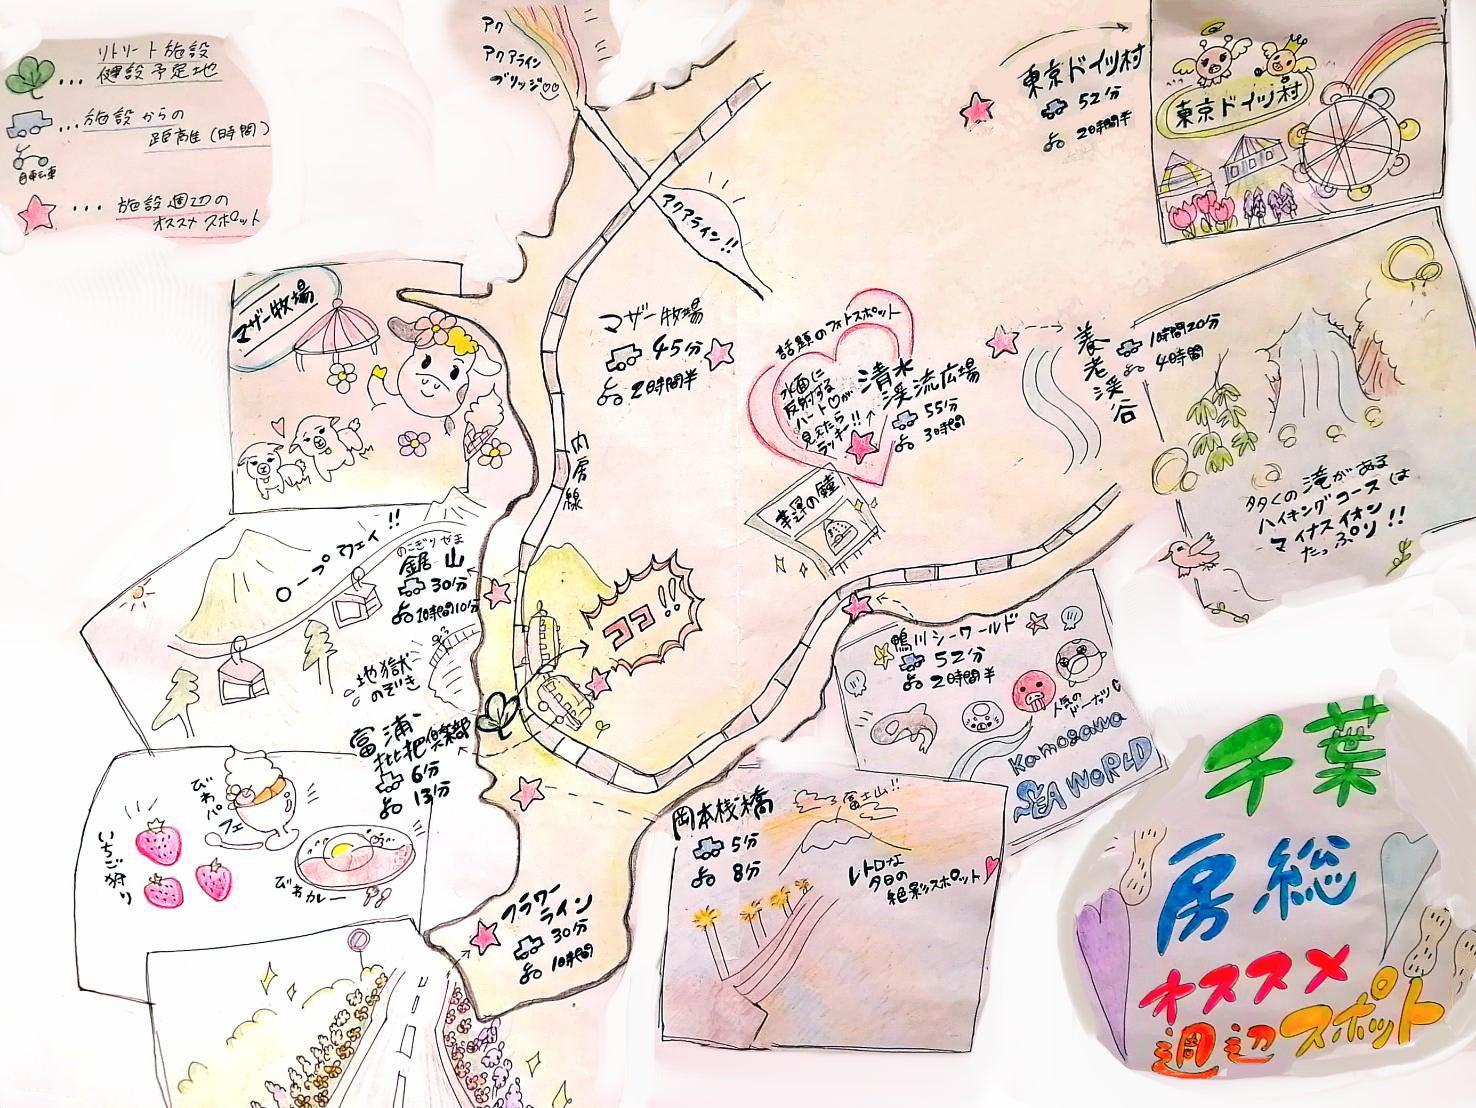 リトリート施設
健設予定地
施設からの
距離(時間)
自転車
施設週辺の
オススメスポット
アク
アクアライン
ブリッジ
アクアライン!!
東京ドイツ村
52分
2時間半
東京ドイツ村
マザー牧場
マザー牧場
45分
2時間半
内房線
話題のフォトスポット
水面に
反射する
ハート♡が
見えたら
ラッキー!!
清水
渓流広場
55分
3時間
養老渓谷
1時間20分
4時間
多くの滝がある
ハイキングコースは
マイナスイオン
たっぷり!!
ロープウェイ!!
のこぎりやま
鋸山
30分
1時間10分
地獄
のぞき
ココ!!
鴨川シーワールド
52分
2時間半
人気の
ドーナッツ
Kamogawa
SEA WORLD
富浦
枇杷倶楽部
6分
13分
びわパフェ
いちご狩り
びわカレー
岡本桟橋
5分
8分
富士山!!
レトロな
夕日の
絶景スポット
フラワー
ライン
30分
1時間
千葉
房総
オススメ
週辺スポット